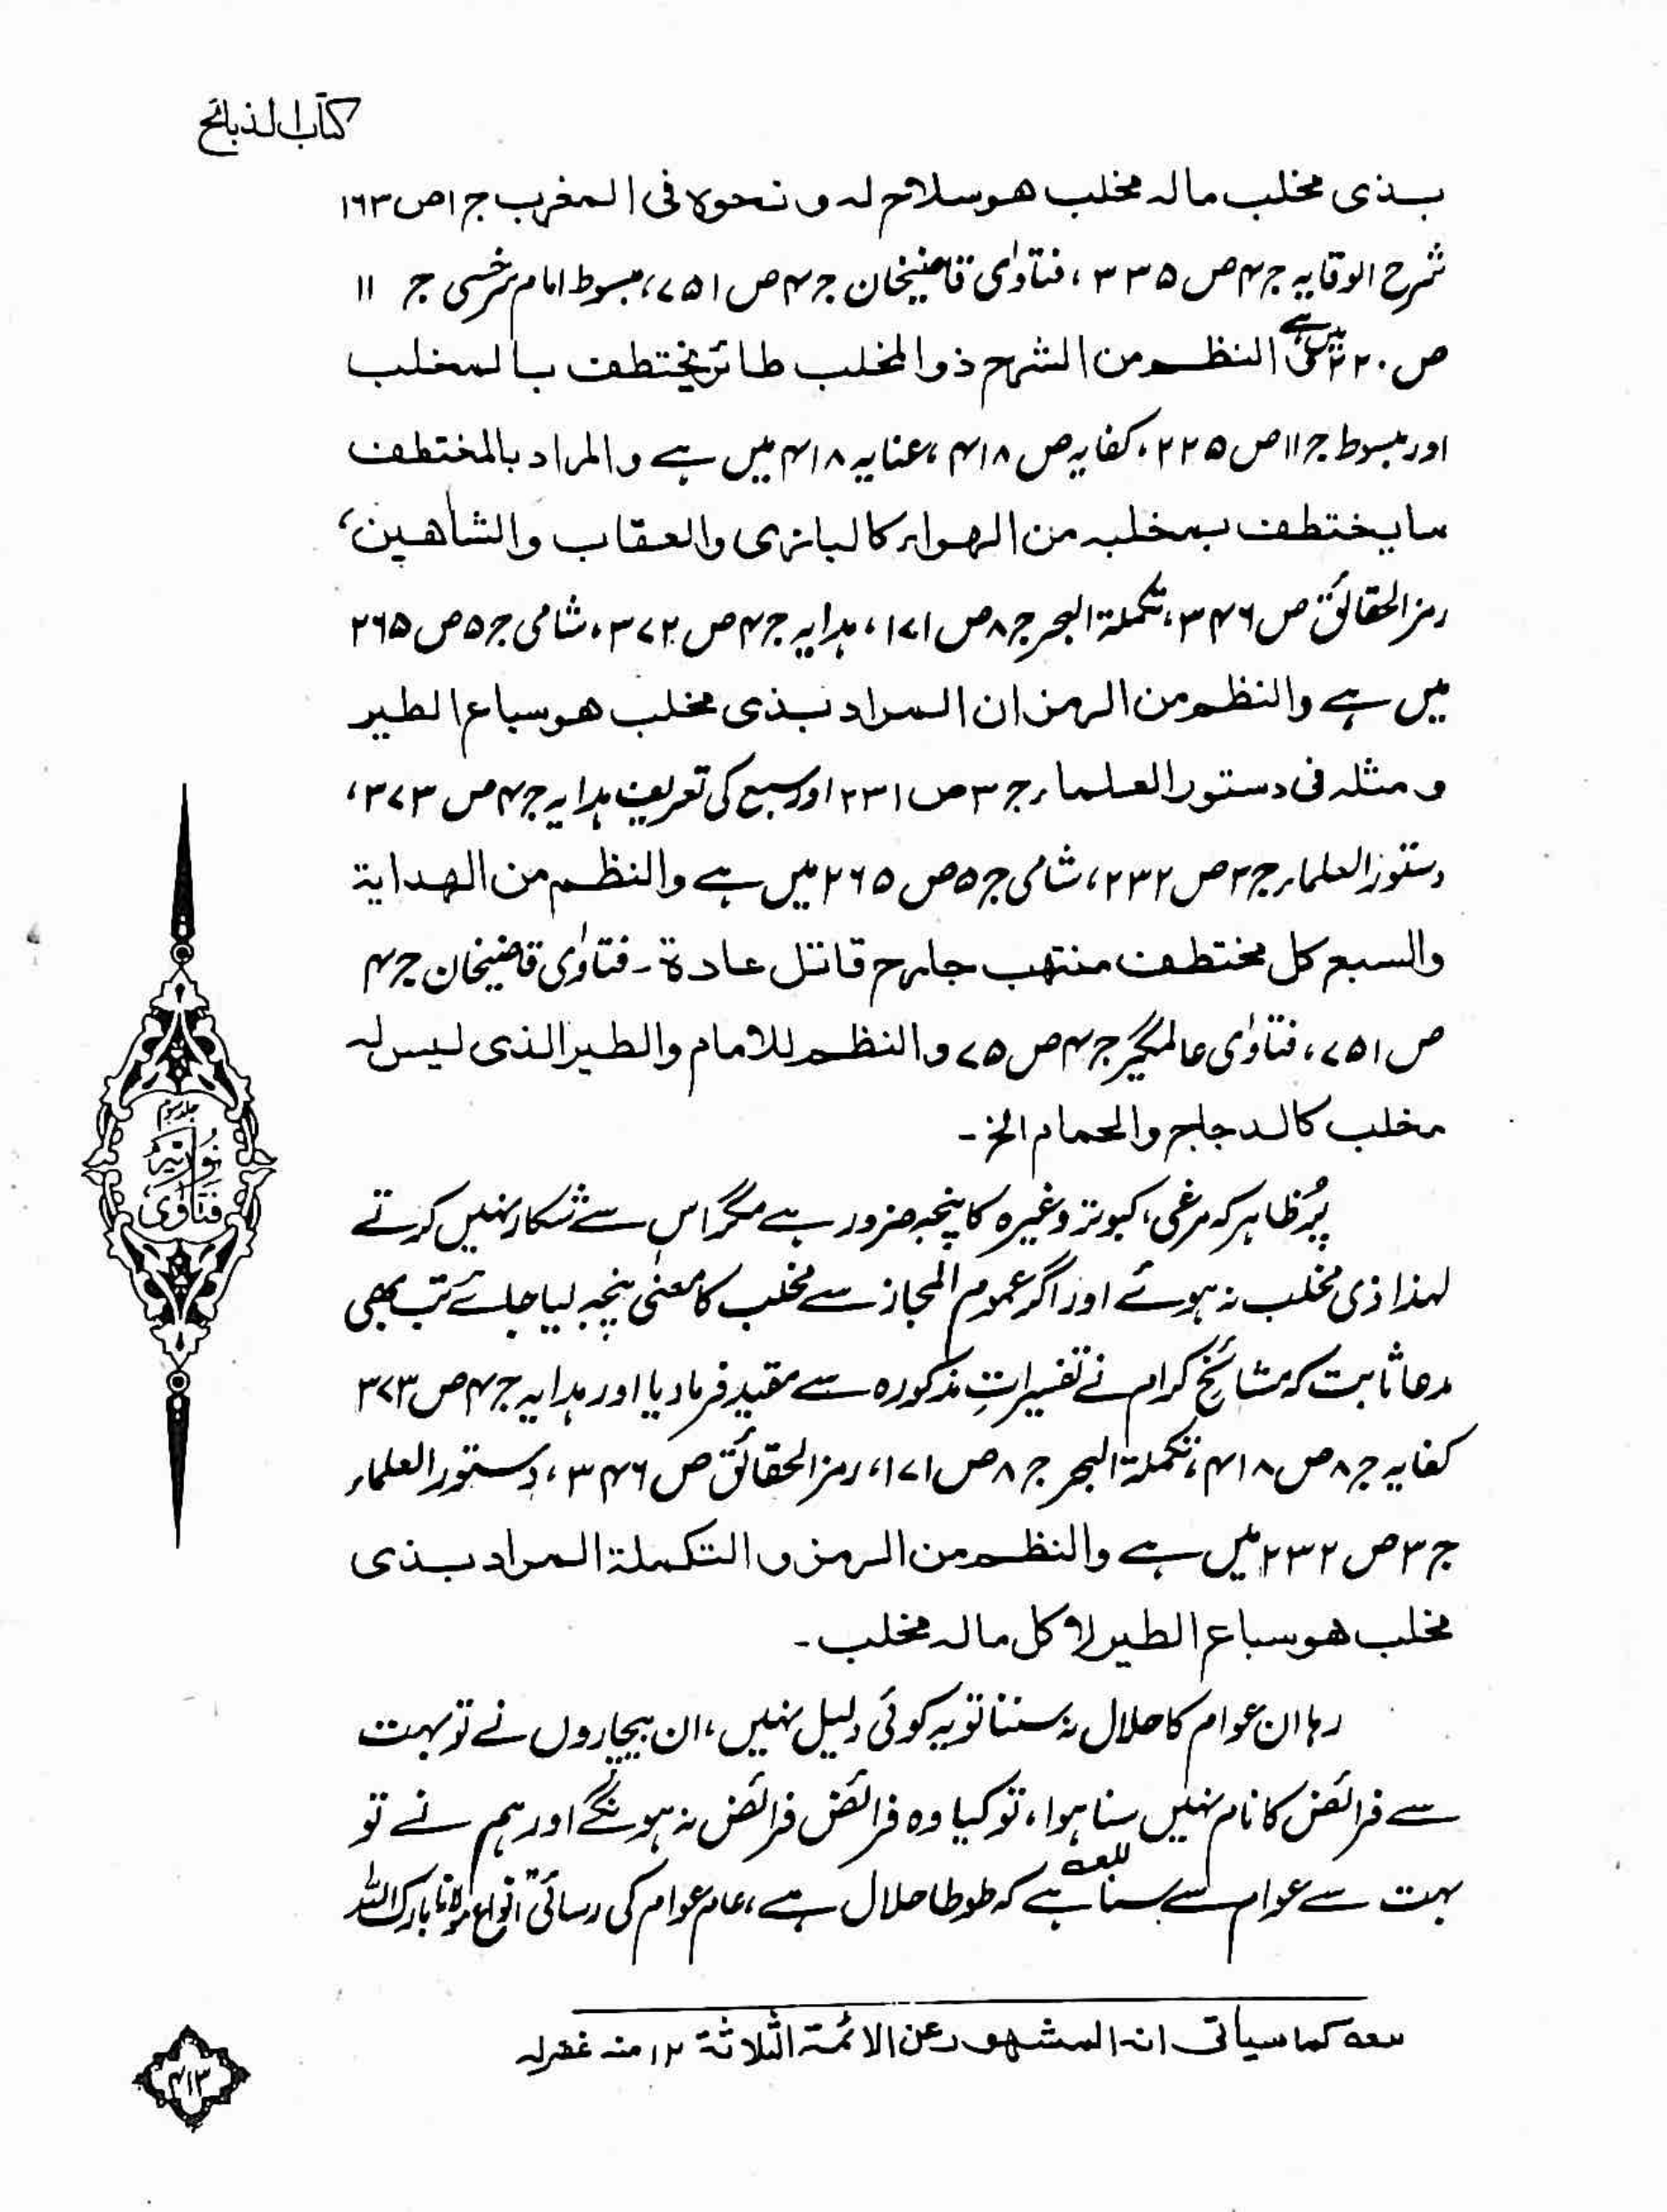 کتاب الذبائح
بذی مخلب مالہ مخلب ھو سلاح لہ و نحوہ فی المغرب ج ۱ ص ۱۶۳
شرح الوقایہ ج ۴ ص ۳۳۵، فتاوٰی قاضیخان ج ۴ ص ۷۵۱، مبسوط امام سرخسی ج ۱۱
ص ۲۲۰ میں ہے النظم من الشرح ذو المخلب طائر یختطف بالمخلب
اور مبسوط ج ۱۱ ص ۲۲۵، کفایہ ص ۴۱۸، عنایہ ۴۱۸ میں ہے والمراد بالمختطف
ما یختطف بمخلبہ من الھواء کالبازی والعقاب والشاھین،
رمز الحقائق ص ۳۴۶، تکملۃ البحر ج ۸ ص ۱۷۱، ہدایہ ج ۴ ص ۳۷۲، شامی ج ۵ ص ۲۶۵
میں ہے والنظم من الرمز ان المراد بذی مخلب ھو سباع الطیر
و مثلہ فی دستور العلماء ج ۳ ص ۲۳۱ اور سبع کی تعریف ہدایہ ج ۴ ص ۳۷۳،
دستور العلماء ج ۳ ص ۲۳۲، شامی ج ۵ ص ۲۶۵ میں ہے والنظم من الھدایۃ
والسبع کل مختطف منتھب جارح قاتل عادۃ۔ فتاوٰی قاضیخان ج ۴
ص ۷۵۱، فتاوٰی عالمگیر ج ۴ ص ۷۵ والنظم للامام والطیر الذی لیس لہ
مخلب کالدجاج والحمام الخ۔
پُر ظاہر کہ مرغی، کبوتر وغیرہ کا پنجہ ضرور ہے مگر اس سے شکار نہیں کرتے
لہذا ذی مخلب نہ ہوئے اور اگر عموم المجاز سے مخلب کا معنیٰ پنجہ لیا جائے تب بھی
مدعا ثابت کہ مشائخ کرام نے تفسیراتِ مذکورہ سے مقید فرما دیا اور ہدایہ ج ۴ ص ۳۷۳
کفایہ ج ۸ ص ۴۱۸، تکملۃ البحر ج ۸ ص ۱۷۱، رمز الحقائق ص ۳۴۶، دستور العلماء
ج ۳ ص ۲۳۲ میں ہے والنظم من الرمز و التکملۃ المراد بذی
مخلب ھو سباع الطیر لا کل مالہ مخلب۔
رہا ان عوام کا حلال نہ سننا تو یہ کوئی دلیل نہیں، ان بیچاروں نے تو بہت
سے فرائض کا نام نہیں سنا ہوا، تو کیا وہ فرائض فرائض نہ ہونگے اور ہم نے تو
بہت سے عوام سے سنا ہے کہ طوطا حلال ہے، عام عوام کی رسائی انواع مولانا بارک اللہ
کما سیاتی انہ المشھور عن الائمۃ الثلاثۃ ۱۲ منہ غفرلہ
جلد سوم
فتاوٰی نوریہ
۴۱۳